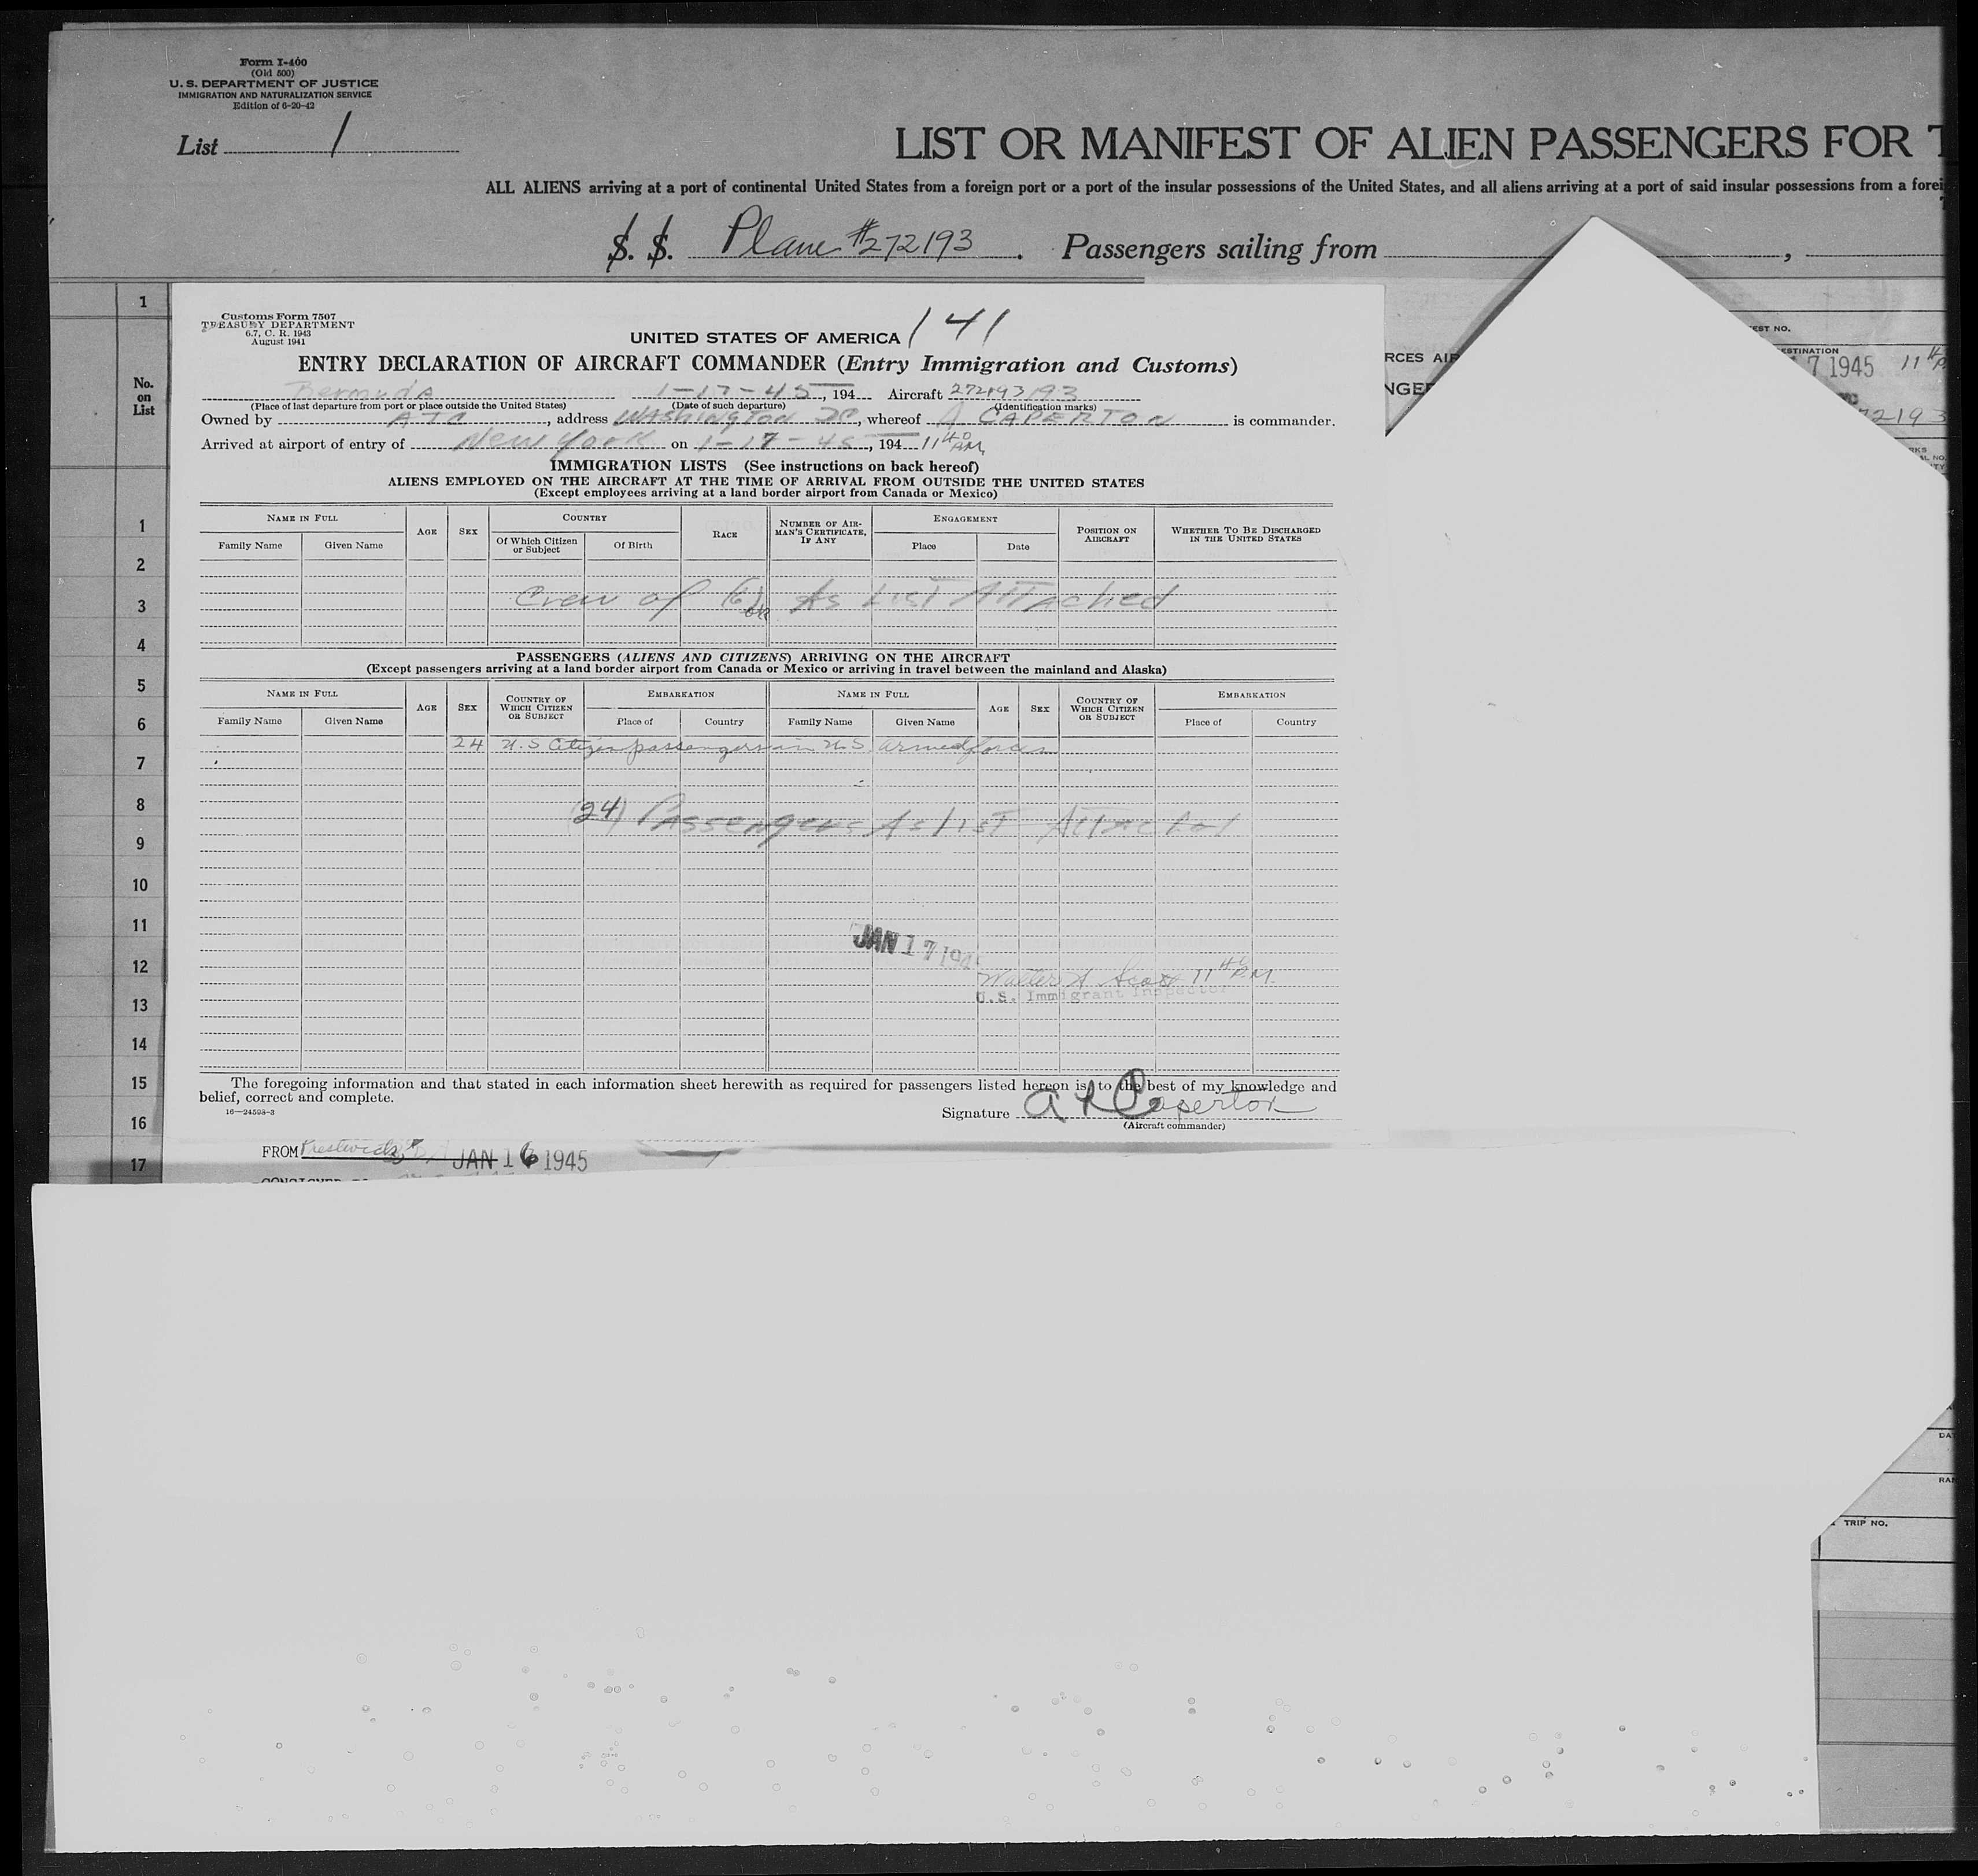 Form I-400
(Old 500)
U. S. DEPARTMENT OF JUSTICE
IMMIGRATION AND NATURALIZATION SERVICE
Edition of 6-20-42
List 1
LIST OR MANIFEST OF ALIEN PASSENGERS FOR T
ALL ALIENS arriving at a port of continental United States from a foreign port or a port of the insular possessions of the United States, and all aliens arriving at a port of said insular possessions from a forei
S. S. Plane #272193. Passengers sailing from ,
1
No.
on
List
1
2
3
4
5
6
7
8
9
10
11
12
13
14
15
16
17
Customs Form 7507
TREASURY DEPARTMENT
6.7, C. R. 1943
August 1941
UNITED STATES OF AMERICA 141
ENTRY DECLARATION OF AIRCRAFT COMMANDER (Entry Immigration and Customs)
Bermuda 1-17-45, 194 Aircraft 27219393
(Place of last departure from port or place outside the United States) (Date of such departure) (Identification marks)
Owned by ATC, address Washington DC, whereof A CAPERTON is commander.
Arrived at airport of entry of New York on 1-17-45, 194 11 40 AM
IMMIGRATION LISTS (See instructions on back hereof)
ALIENS EMPLOYED ON THE AIRCRAFT AT THE TIME OF ARRIVAL FROM OUTSIDE THE UNITED STATES
(Except employees arriving at a land border airport from Canada or Mexico)
NAME IN FULL AGE SEX COUNTRY RACE NUMBER OF AIRMAN'S CERTIFICATE, IF ANY ENGAGEMENT POSITION ON AIRCRAFT WHETHER TO BE DISCHARGED IN THE UNITED STATES
Family Name Given Name Of Which Citizen or Subject Of Birth Place Date
Crew of (6) As List Attached
PASSENGERS (ALIENS AND CITIZENS) ARRIVING ON THE AIRCRAFT
(Except passengers arriving at a land border airport from Canada or Mexico or arriving in travel between the mainland and Alaska)
NAME IN FULL AGE SEX COUNTRY OF WHICH CITIZEN OR SUBJECT EMBARKATION NAME IN FULL AGE SEX COUNTRY OF WHICH CITIZEN OR SUBJECT EMBARKATION
Family Name Given Name Place of Country Family Name Given Name Place of Country
24 U.S Citizen passengers in U.S. armed forces
(24) Passengers As List Attached
JAN 17 194
Walter A 11 40 AM
U.S. Immigrant Inspector
The foregoing information and that stated in each information sheet herewith as required for passengers listed hereon is, to the best of my knowledge and
belief, correct and complete.
16—24598-3
Signature A Caperton
(Aircraft commander)
FROM Prestwick JAN 16 1945
RCES AIR
NGER
EST NO.
ESTINATION
7 1945 11 40
72193
TRIP NO.